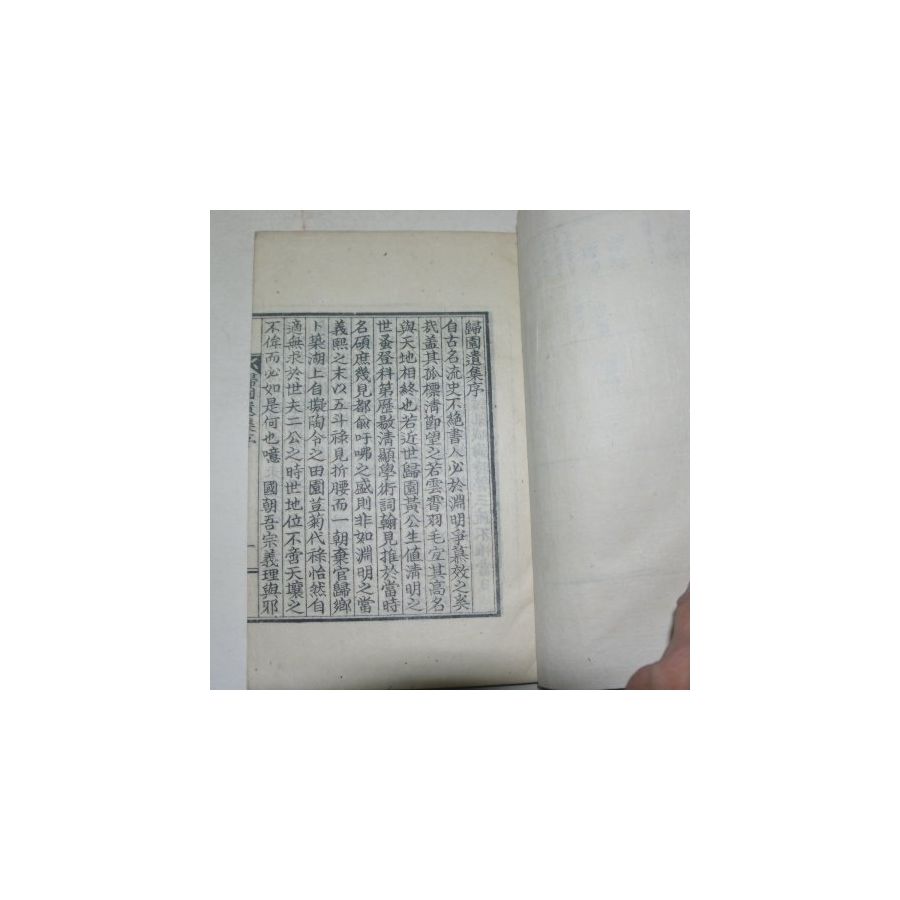 歸園遺集序
自古名流史不絶書人必於淵明爭慕效之矣
哉盖其孤標淸節望之若雲霄羽毛宜其高名
與天地相終也若近世歸園黃公生値淸明之
世蚤登科第歷敭淸顯學術詞翰見推於當時
名碩庶幾見都兪吁咈之盛則非如淵明之當
義熙之末以五斗祿見折腰而一朝棄官歸鄕
卜築湖上自擬陶令之田園荳菊代祿怡然自
適無求於世夫二公之時世地位不啻天壤之
不侔而必如是何也噫 國朝吾宗義理與邪